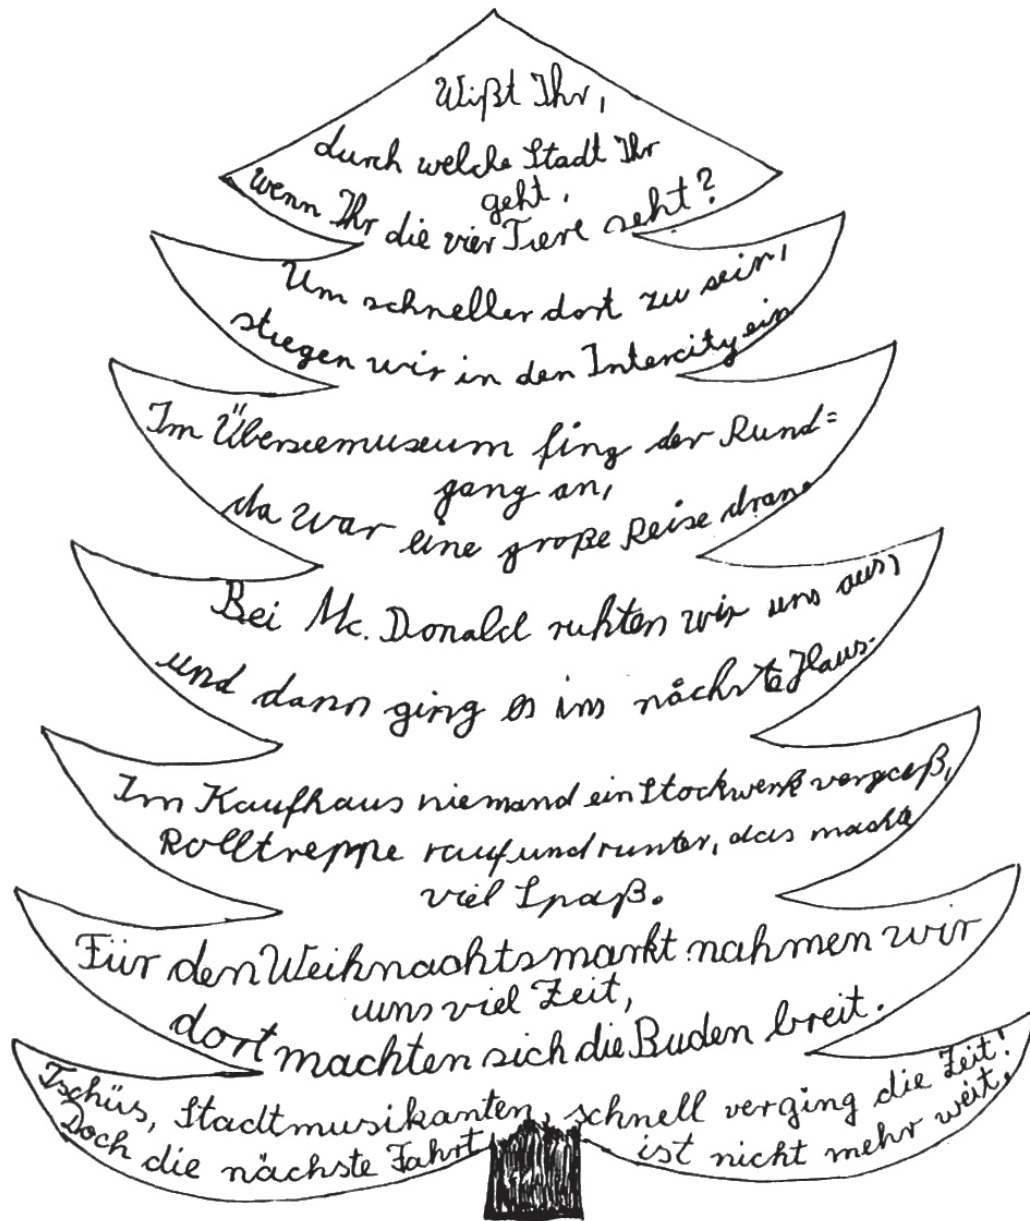 Wißt Ihr,
durch welche Stadt Ihr
geht,
wenn Ihr die vier Tiere seht?
Um schneller dort zu sein,
stiegen wir in den Intercity ein
Im Überseemuseum fing der Rund=
gang an,
da war eine große Reise dran.
Bei Mc. Donald ruhten wir uns aus,
und dann ging es ins nächste Haus.
Im Kaufhaus niemand ein Stockwerk vergaß,
Rolltreppe rauf und runter, das machte
viel Spaß.
Für den Weihnachtsmarkt nahmen wir
uns viel Zeit,
dort machten sich die Buden breit.
Tschüs, Stadtmusikanten, schnell verging die Zeit!
Doch die nächste Fahrt ist nicht mehr weit.